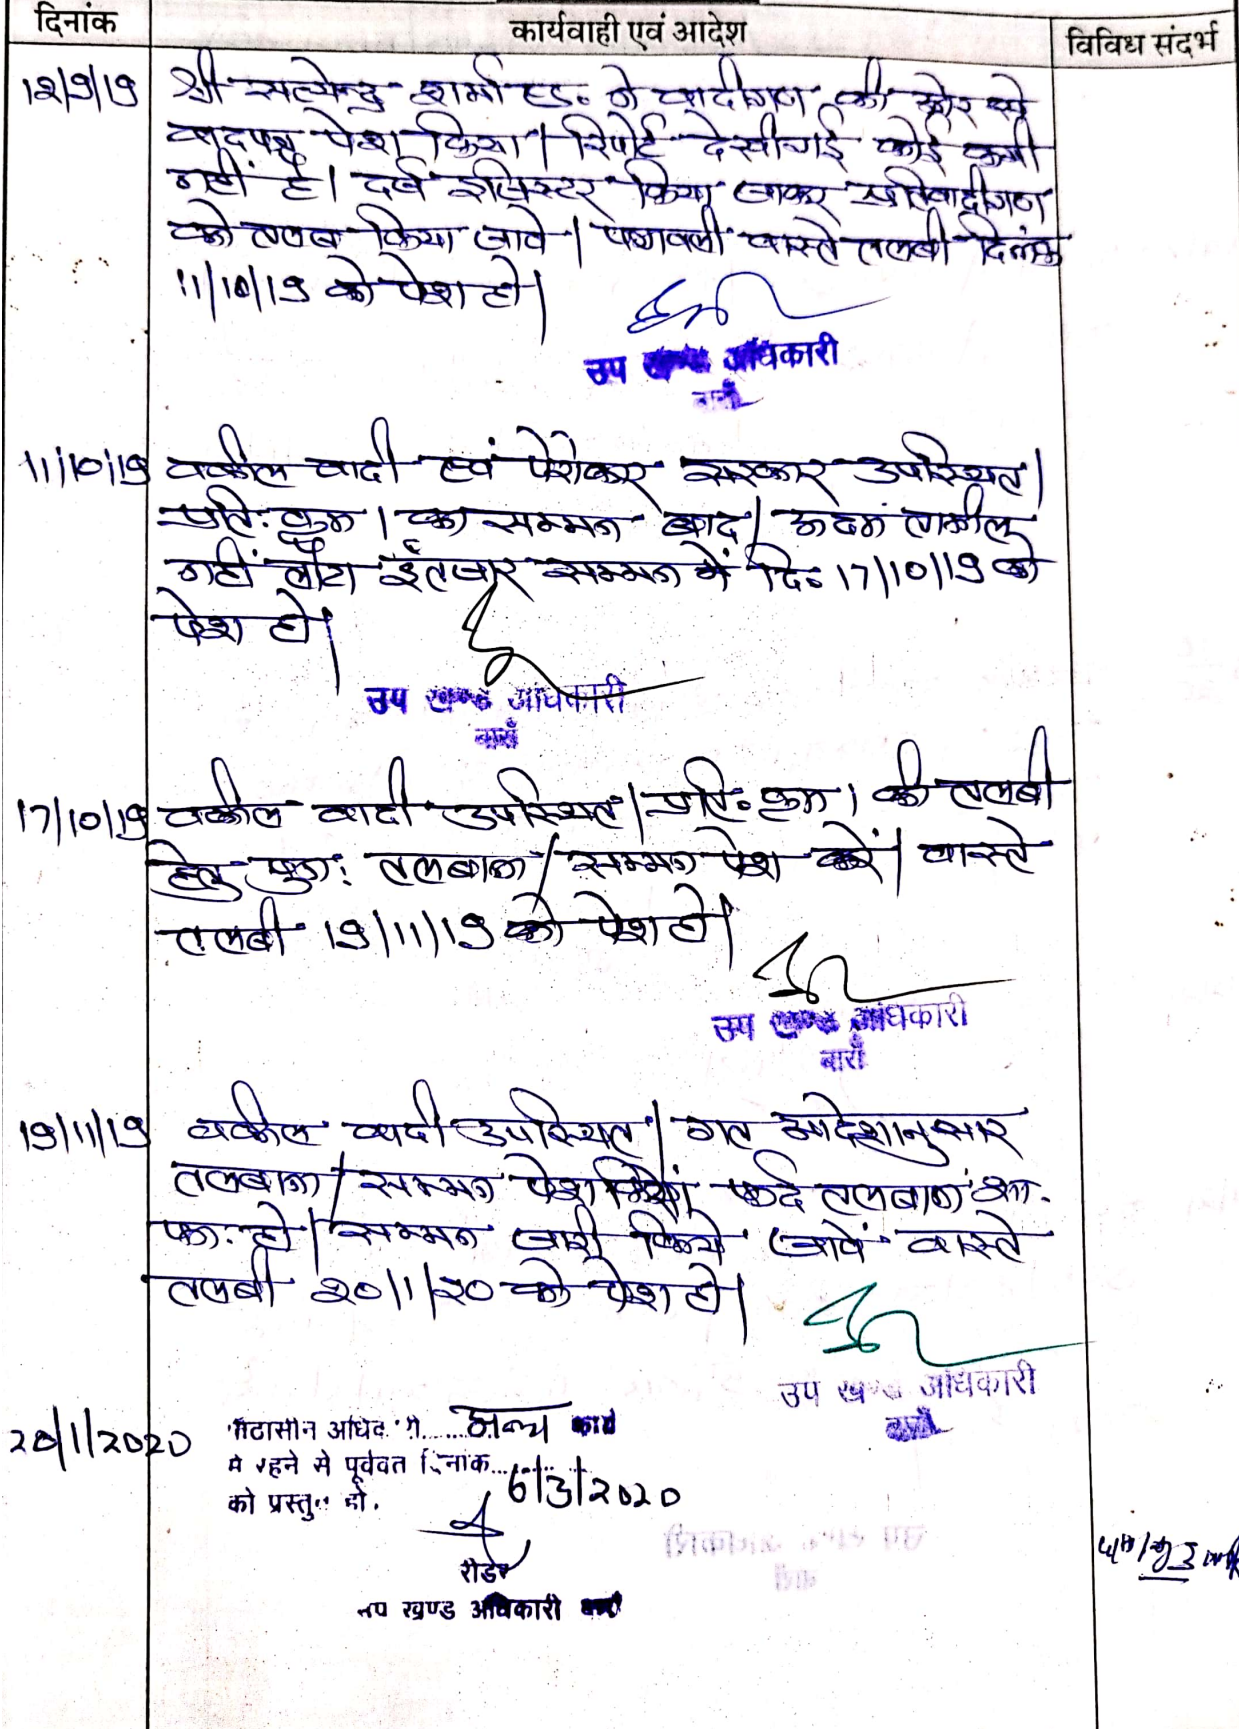 दिनांक
कार्यवाही एवं आदेश
विविध संदर्भ
12/9/19 श्री सत्येन्द्र शर्मा एड० ने वादीगण की ओर से
वादपत्र पेश किया। रिपोर्ट देखी गई कोई कमी
नहीं है। दर्ज रजिस्टर किया जाकर प्रतिवादीगण
को तलब किया जावे। पत्रावली वास्ते तलबी दिनांक
11/10/19 को पेश हो।
उप खण्ड अधिकारी
बाराँ
11/10/19 वकील वादी एवं पेरोकार सरकार उपस्थित।
प्रति: क्रम 1 का सम्मन बाद। अदम तामील
नहीं लौटा इंतजार सम्मन में दि० 17/10/19 को
पेश हो।
उप खण्ड अधिकारी
बाराँ
17/10/19 वकील वादी उपस्थित। प्रति० क्रम 1 की तलबी
हेतु पुन: तलबाना/सम्मन पेश करें। वास्ते
तलबी 19/11/19 को पेश हो।
उप खण्ड अधिकारी
बाराँ
19/11/19 वकील वादी उपस्थित। गत आदेशानुसार
तलबाना/सम्मन पेश किये। फर्द तलबाना शा.
फा: हो। सम्मन जारी किये जावें वास्ते
तलबी 20/1/20 को पेश हो।
उप खण्ड अधिकारी
बाराँ
20/1/2020 पीठासीन अधिकारी के अन्य कार्य
मे रहने से पूर्ववत दिनांक 6/3/2020
को प्रस्तुत हो.
रीडर
उप खण्ड अधिकारी बाराँ